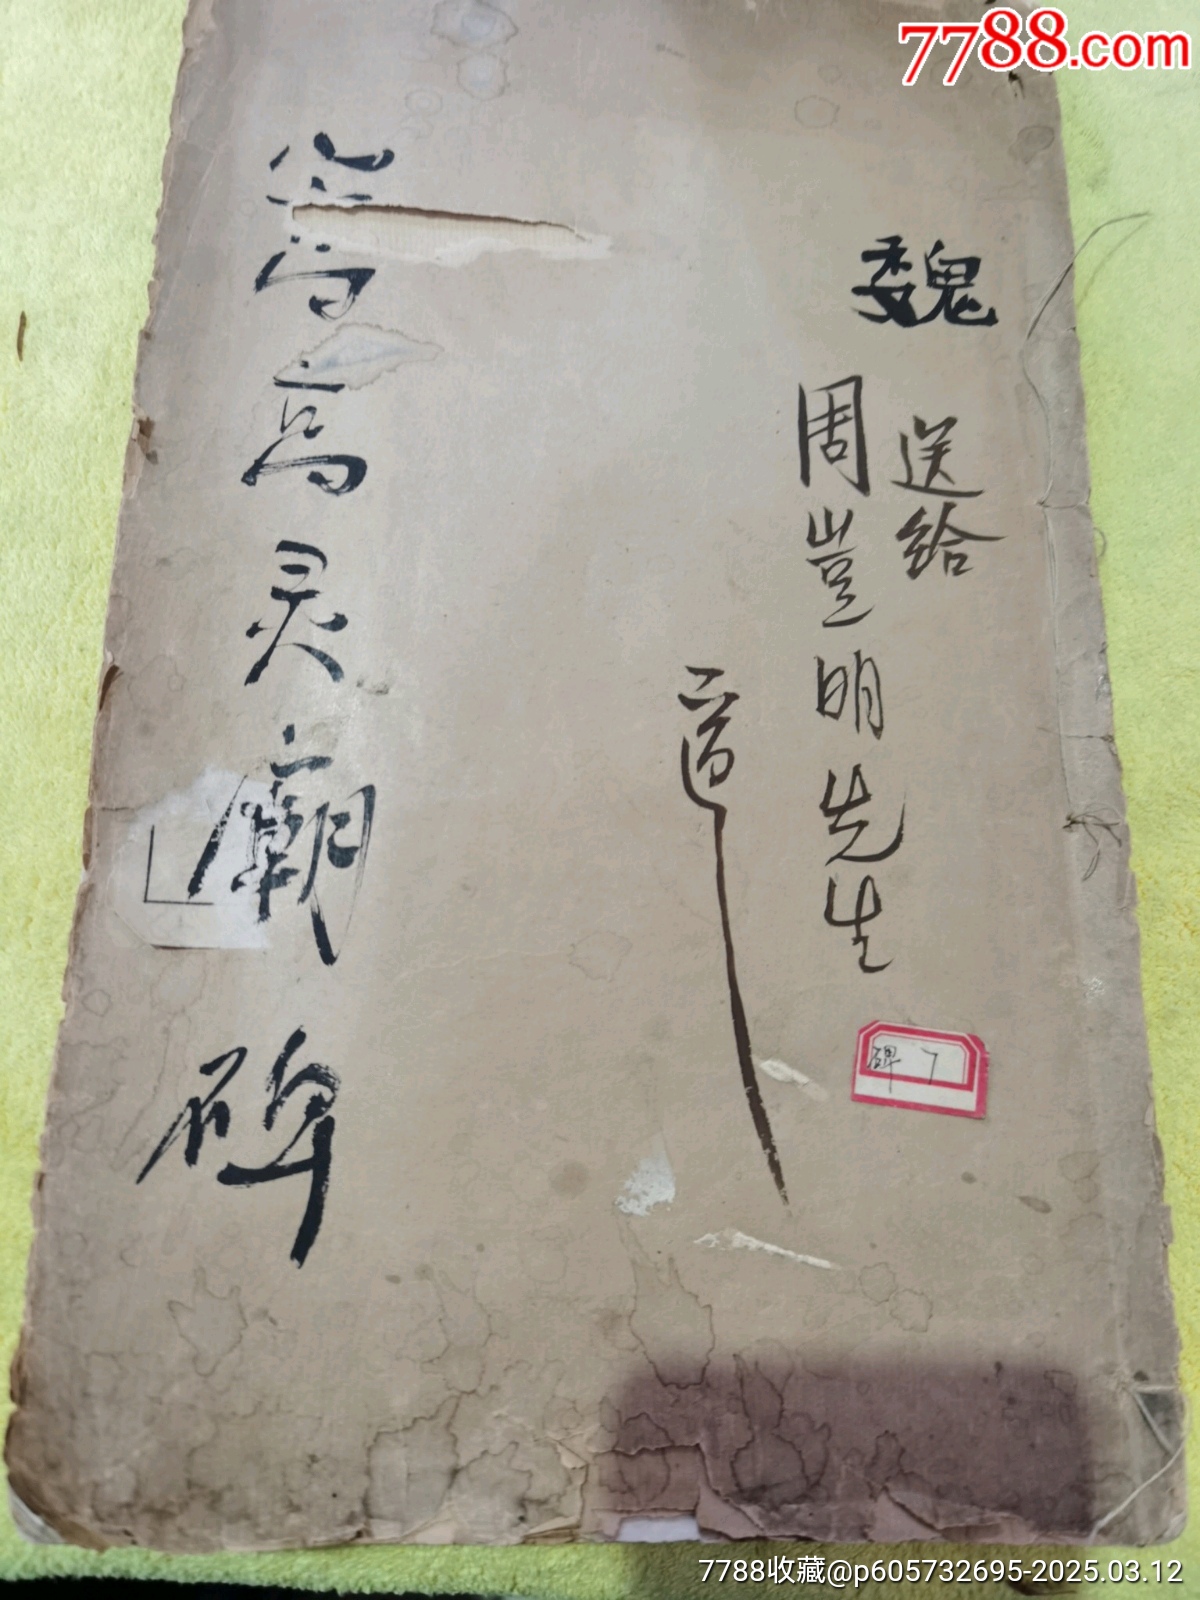 7788.com
魏
送给
周豈明先生
適
嵩高灵廟碑
碑 7
7788收藏@p605732695-2025.03.12